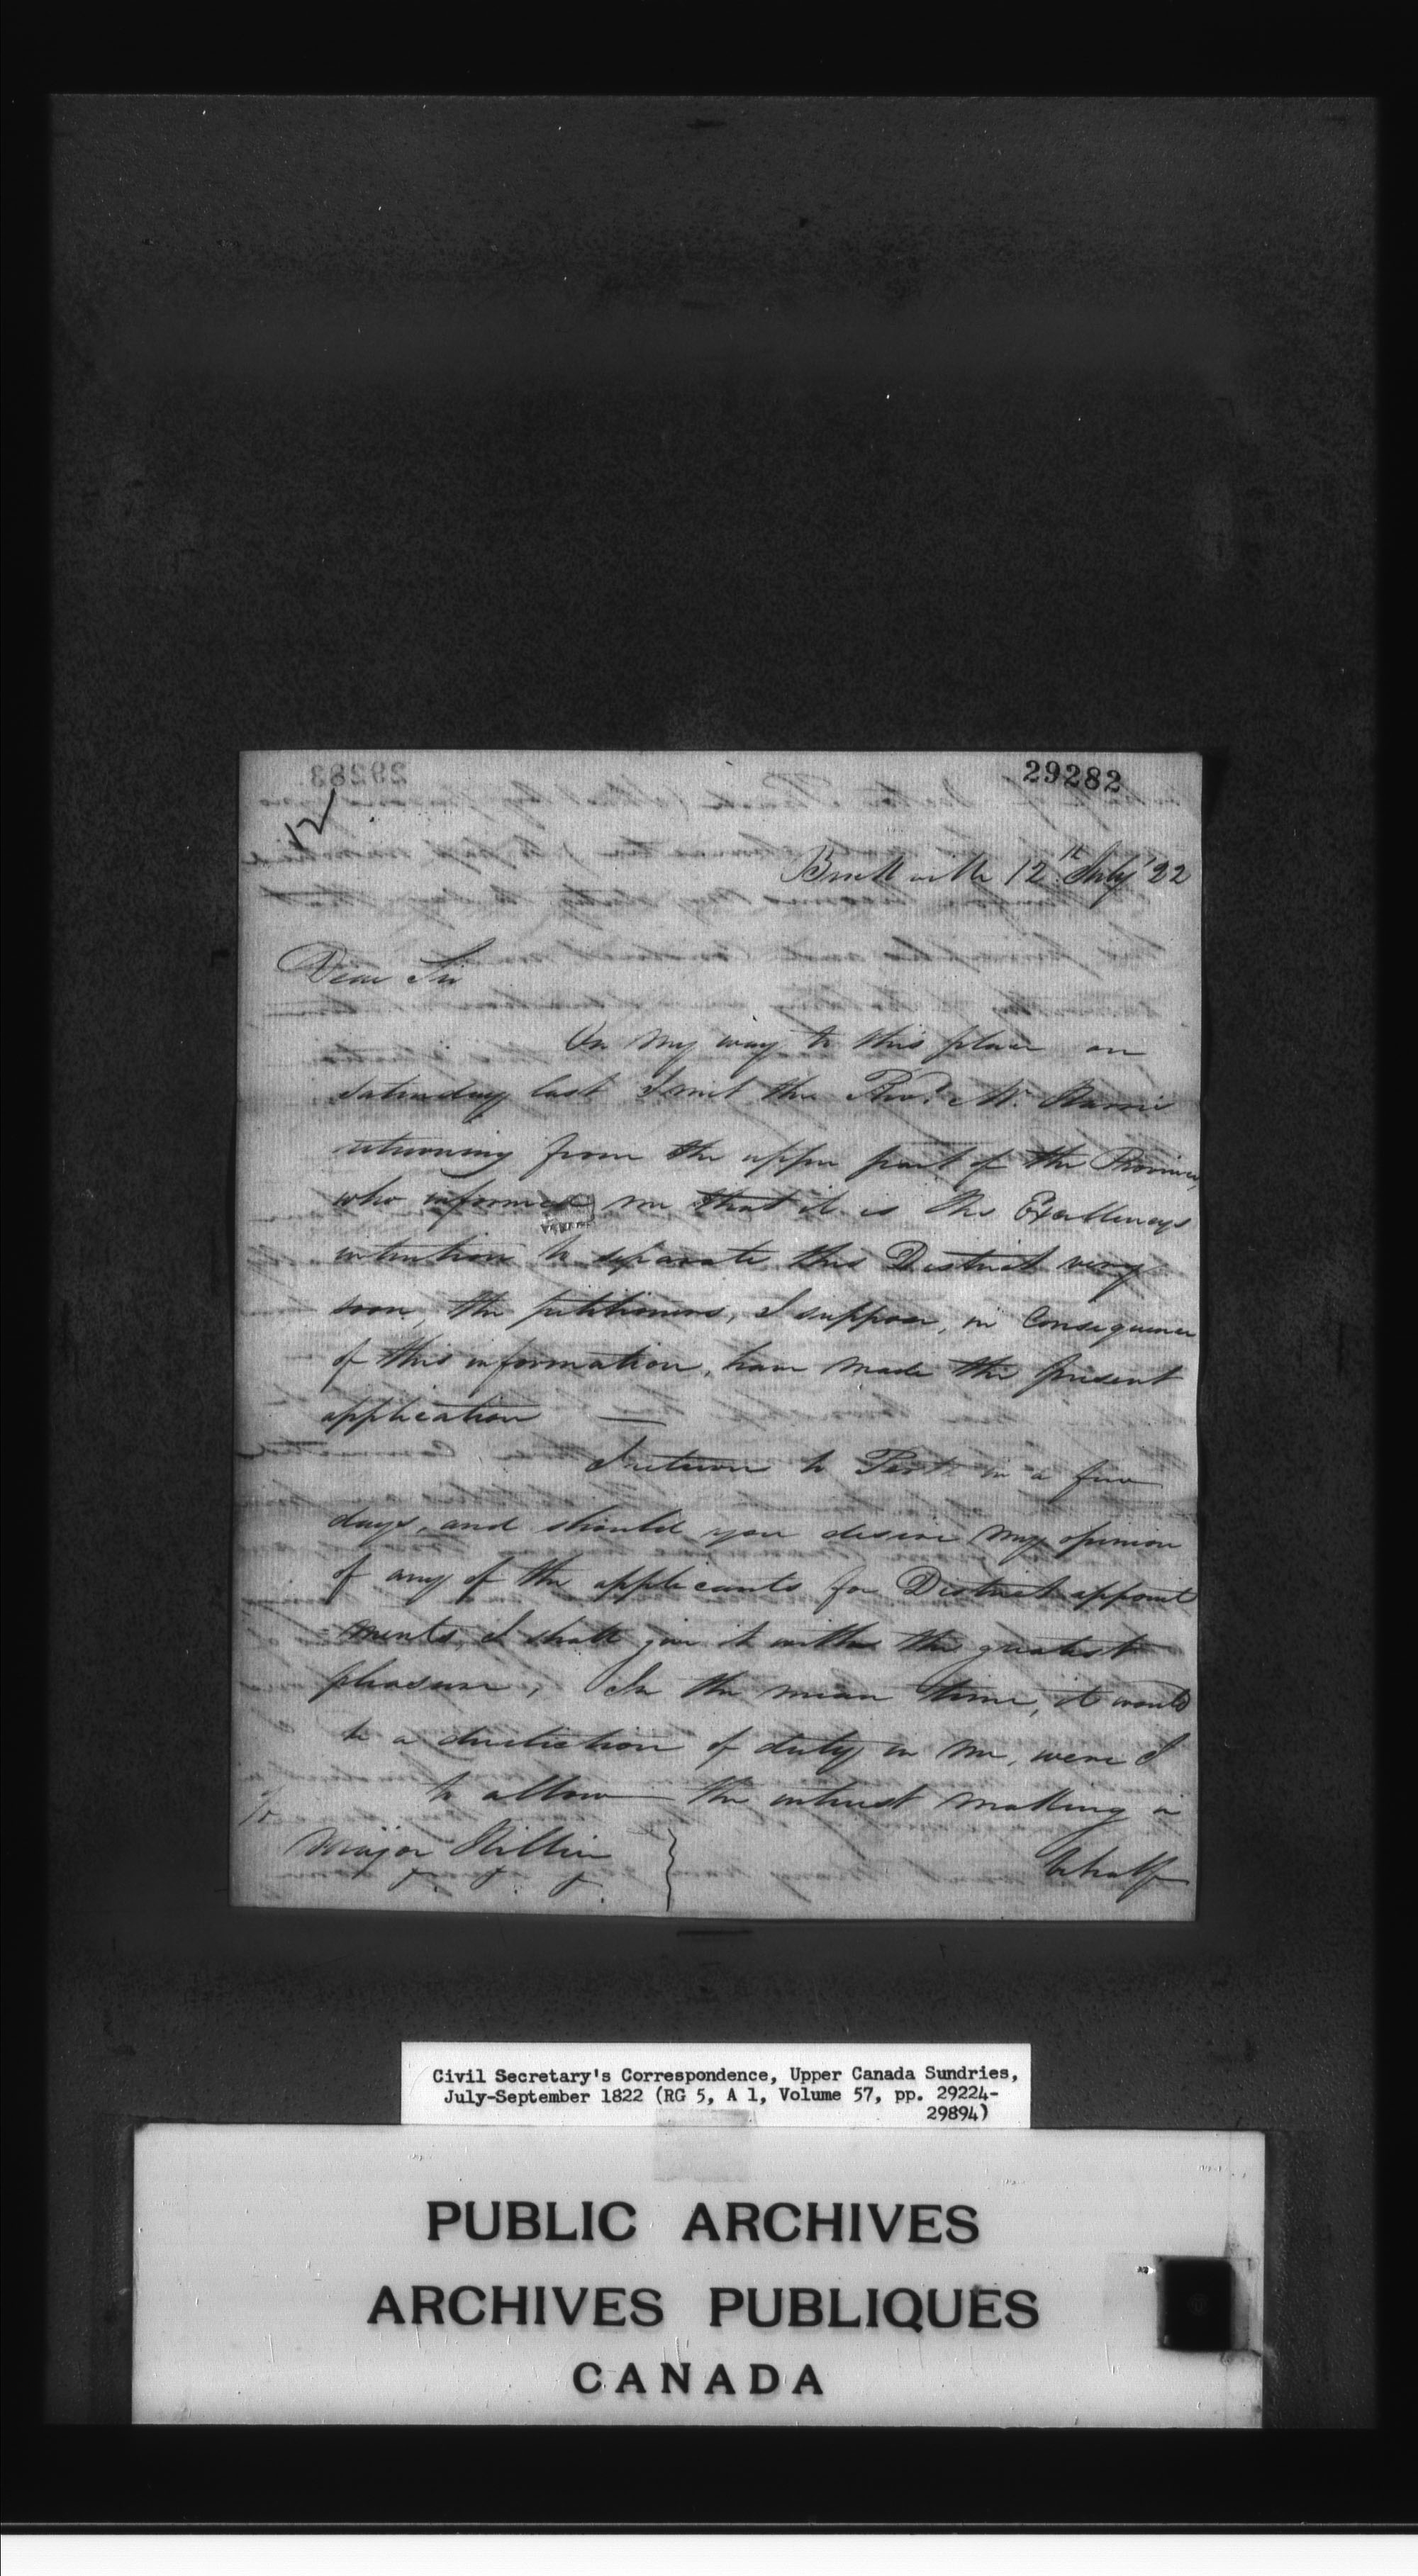 29282
12
Brockville 12th July '22
Dear Sir
On my way to this place on
saturday last I met the Revd. Mr. Harris
returning from the upper part of the Province,
who informed me that it is His Excellencys
intention to separate this District very
soon, the petitioners, I suppose, in Consequence
of this information, have made the present
application —
I return to Perth in a few
days, and should you desire my opinion
of any of the applicants for District appoint
=ments, I shall give it with the greatest
pleasure, In the mean time, it would
be a direliction of duty in me, were I
to allow the interest making in
To
Major Hillier
behalf
Civil Secretary's Correspondence, Upper Canada Sundries,
July-September 1822 (RG 5, A 1, Volume 57, pp. 29224-
29894)
PUBLIC ARCHIVES
ARCHIVES PUBLIQUES
CANADA